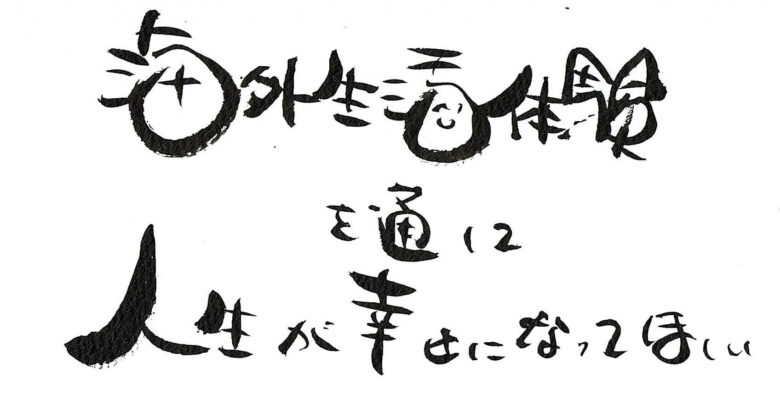 海外生活体験
を通して
人生が幸せになってほしい